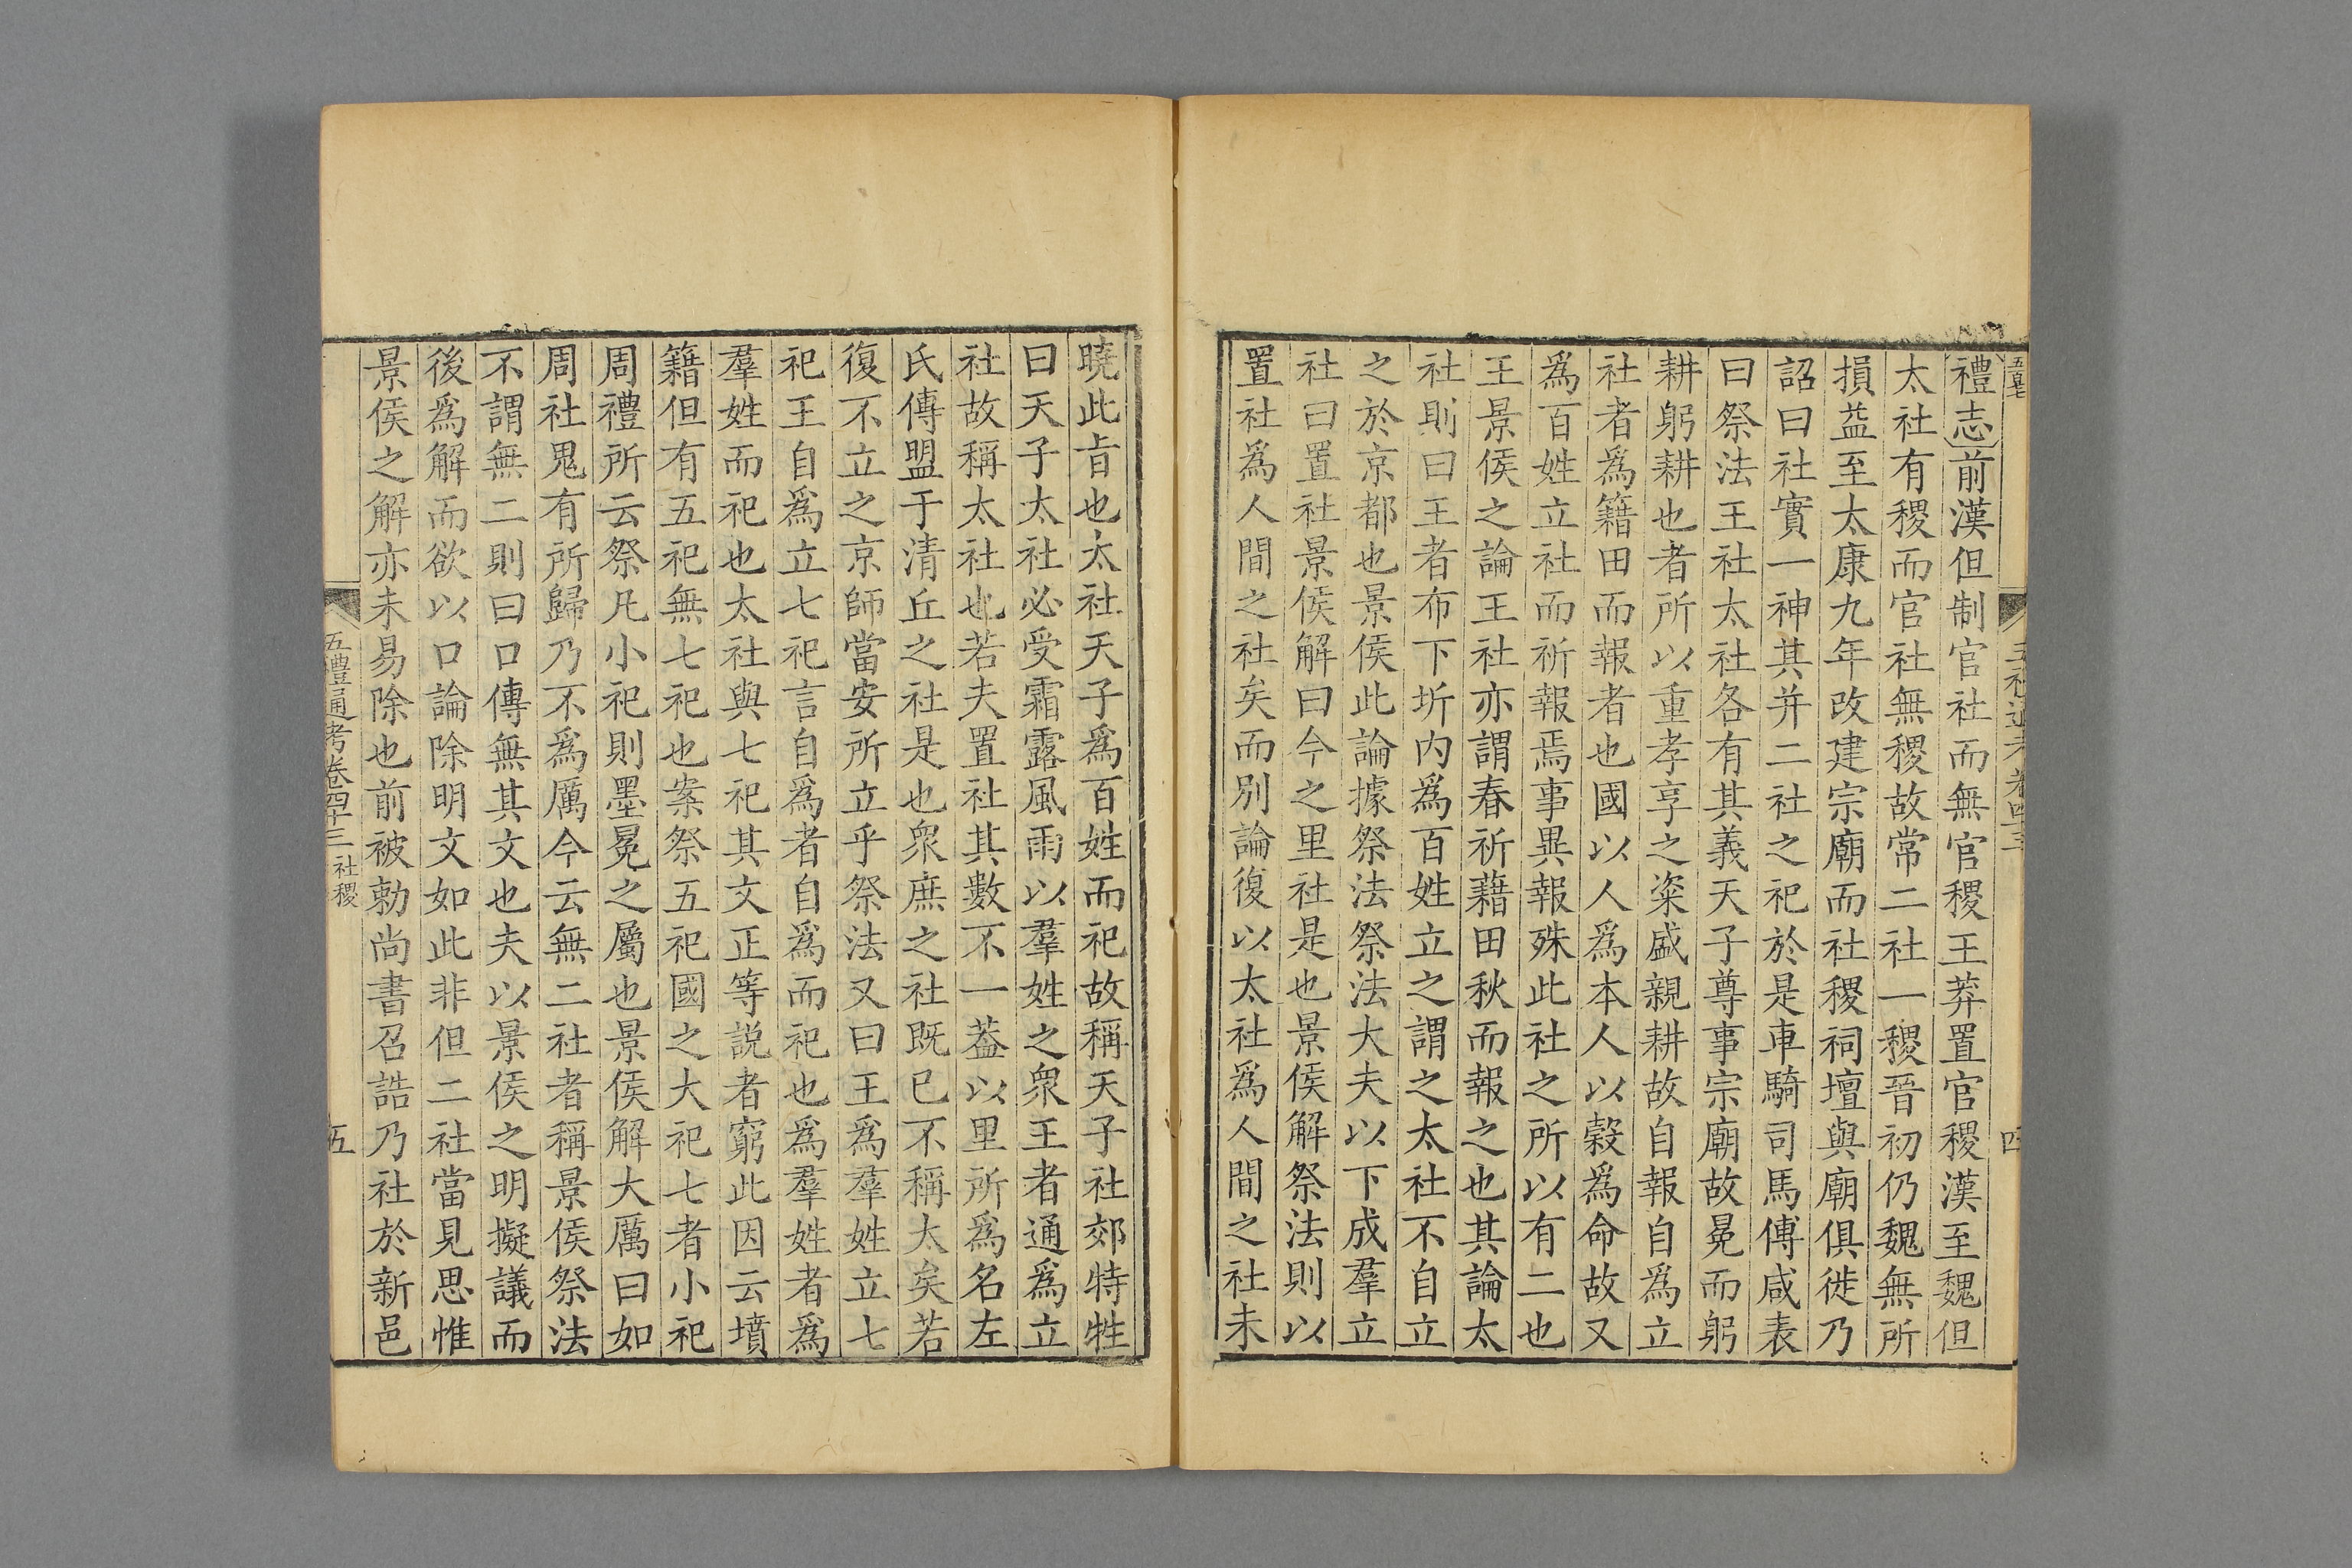 禮志前漢但制官社而無官稷王莽置官稷漢至魏但
太社有稷而官社無稷故常二社一稷晉初仍魏無所
損益至太康九年改建宗廟而社稷祠壇與廟俱徙乃
詔曰社實一神其并二社之祀於是車騎司馬傅咸表
曰祭法王社太社各有其義天子尊事宗廟故冕而躬
耕躬耕也者所以重孝享之粢盛親耕故自報自爲立
社者爲籍田而報者也國以人爲本人以穀爲命故又
爲百姓立社而祈報焉事異報殊此社之所以有二也
王景侯之論王社亦謂春祈藉田秋而報之也其論太
社則曰王者布下圻内爲百姓立之謂之太社不自立
之於京都也景侯此論據祭法祭法大夫以下成羣立
社曰置社景侯解曰今之里社是也景侯解祭法則以
置社爲人間之社矣而別論復以太社爲人間之社未
曉此㫖也太社天子爲百姓而祀故稱天子社郊特牲
曰天子太社必受霜露風雨以羣姓之衆王者通爲立
社故稱太社也若夫置社其數不一葢以里所爲名左
氏傳盟于清丘之社是也衆庶之社既已不稱太矣若
復不立之京師當安所立乎祭法又曰王爲羣姓立七
祀王自爲立七祀言自爲者自爲而祀也爲羣姓者爲
羣姓而祀也太社與七祀其文正等説者窮此因云墳
籍但有五祀無七祀也案祭五祀國之大祀七者小祀
周禮所云祭凡小祀則墨冕之屬也景侯解大厲曰如
周社鬼有所歸乃不爲厲今云無二社者稱景侯祭法
不謂無二則曰口傳無其文也夫以景侯之明擬議而
後爲解而欲以口論除明文如此非但二社當見思惟
景侯之解亦未易除也前被勅尚書召誥乃社於新邑
五禮通考卷四十三 社稷 五